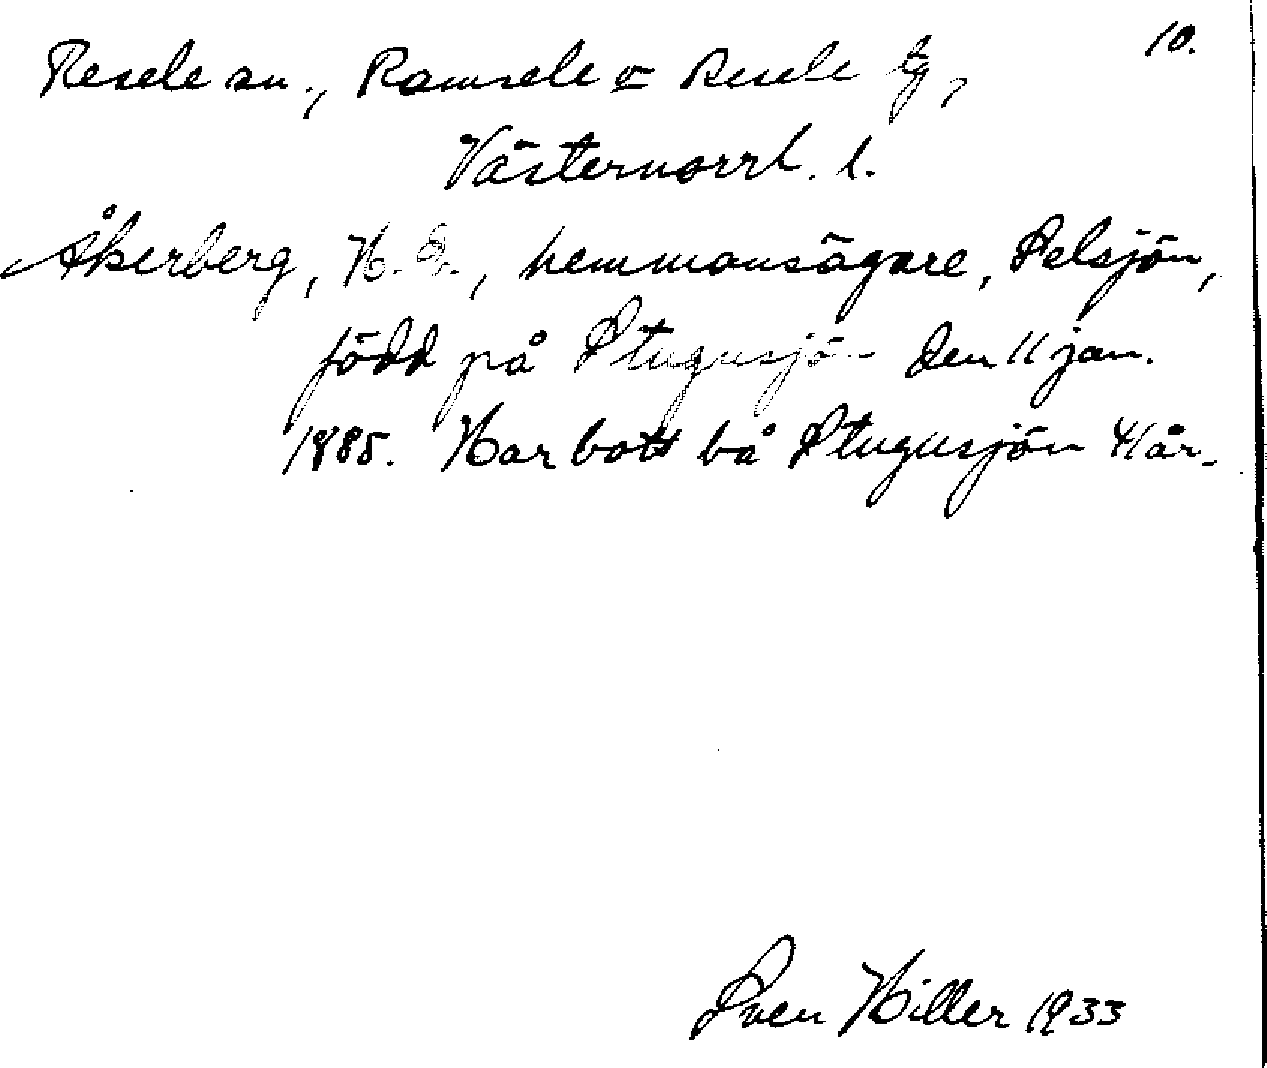 10.
Resele sn., Ramsele o Resele tg,
Västernorrl. l.
Åkerberg, H. G., hemmansägare, Selsjön,
född på Stugusjön den 11 jan.
1885. Har bott bå Stugusjön 41 år.
Sven Hiller 1933